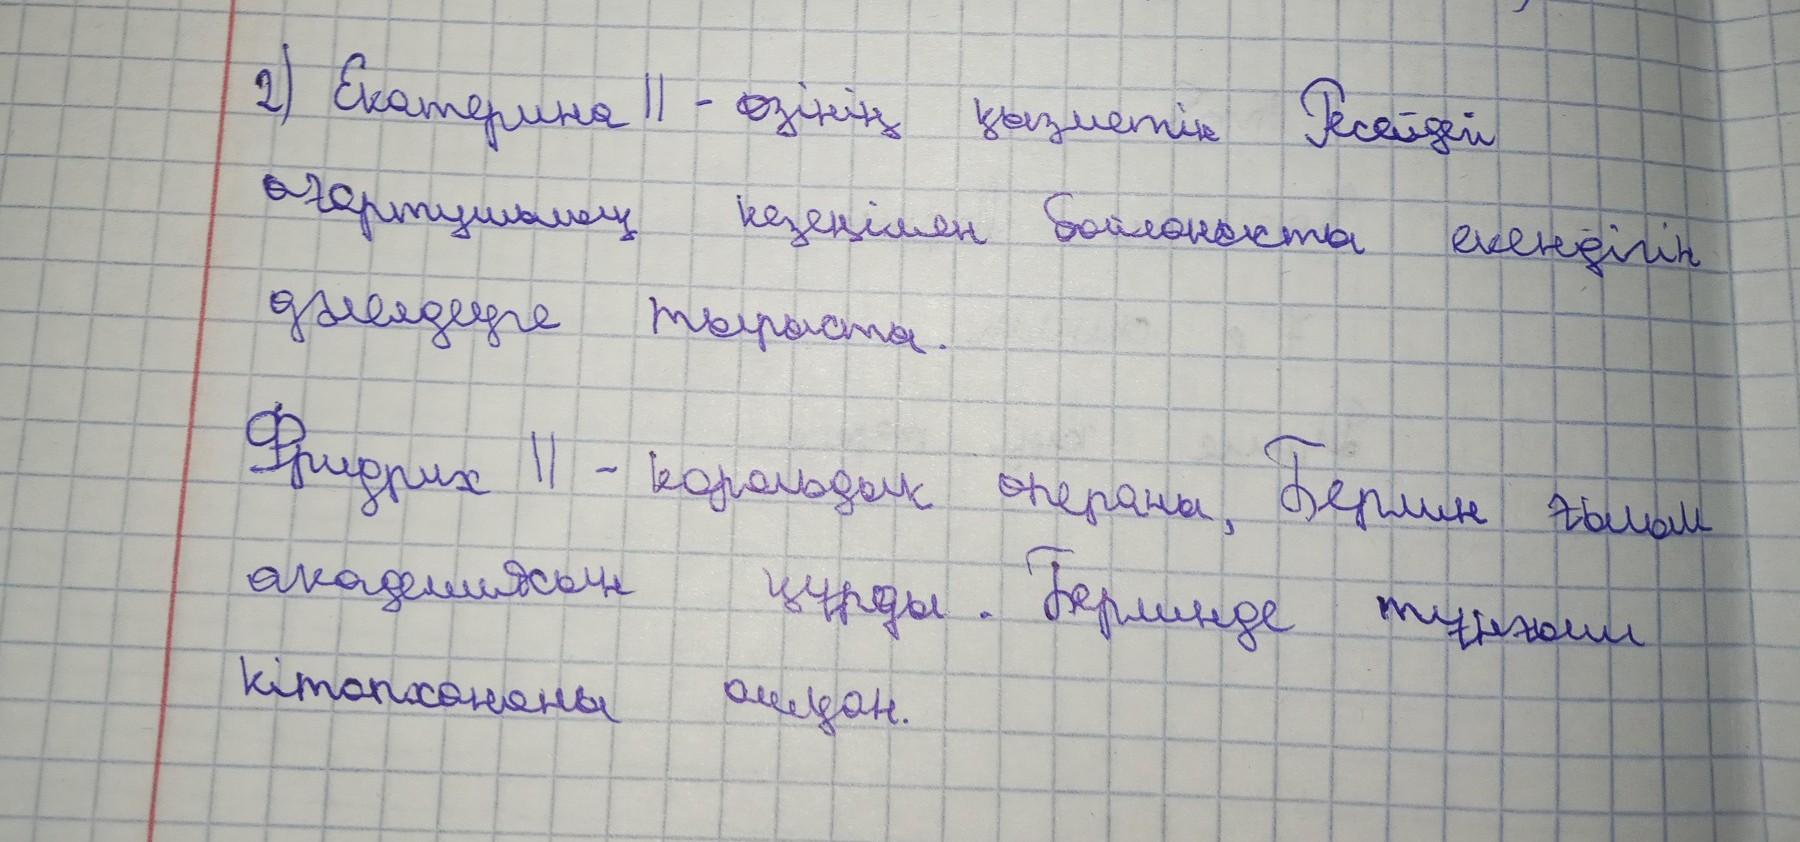 2) Екатерина II - өзінің қызметін Ресейдей
ағартушылық кезеңімен байланыста екендігін
дәлелдеуге тырыста.
Фридрих II - корольдық операны, Берлин ғылым
академиясын құрды. Берлинде тұңғыш
кітапхананы ашқан.